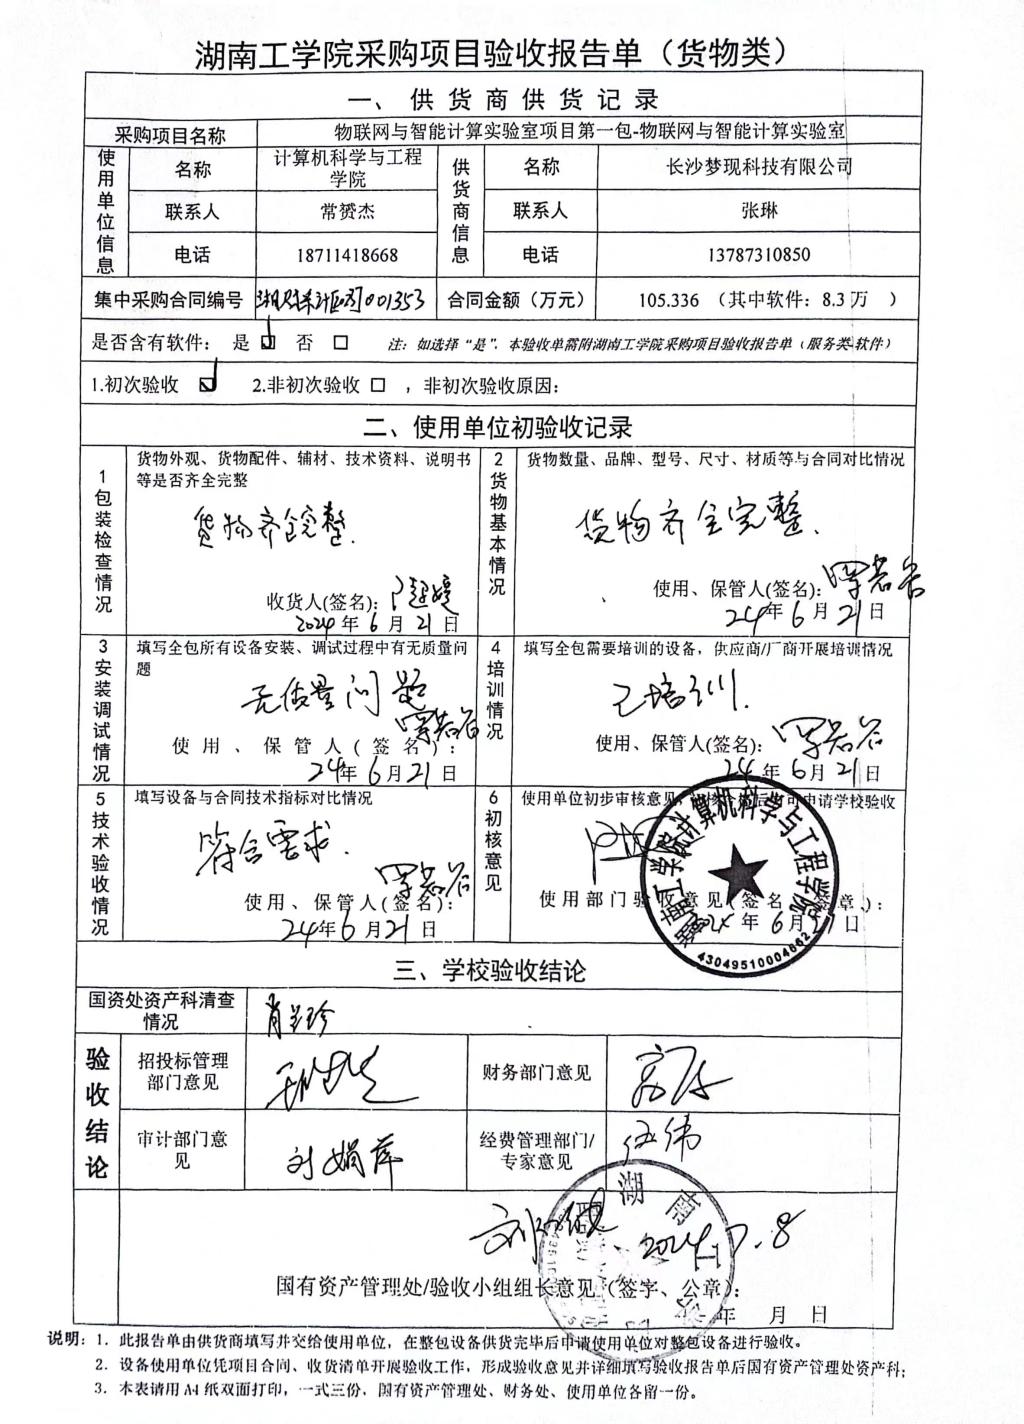 湖南工学院采购项目验收报告单（货物类）
一、供货商供货记录
采购项目名称 物联网与智能计算实验室项目第一包-物联网与智能计算实验室
使用单位信息 名称 计算机科学与工程学院 供货商信息 名称 长沙梦现科技有限公司
联系人 常赟杰 联系人 张琳
电话 18711418668 电话 13787310850
集中采购合同编号 001353 合同金额（万元） 105.336 （其中软件：8.3万 ）
是否含有软件： 是 ☑ 否 □ 注：如选择“是”，本验收单需附湖南工学院采购项目验收报告单（服务类-软件）
1.初次验收 ☑ 2.非初次验收 □ ，非初次验收原因：
二、使用单位初验收记录
1 包装检查情况 货物外观、货物配件、辅材、技术资料、说明书等是否齐全完整
货物齐全完整.
收货人(签名):
2024 年 6 月 21 日
2 货物基本情况 货物数量、品牌、型号、尺寸、材质等与合同对比情况
货物齐全完整.
使用、保管人(签名):
24年 6 月 21 日
3 安装调试情况 填写全包所有设备安装、调试过程中有无质量问题
无质量问题
使用、保管人(签名):
24年 6 月 21 日
4 培训情况 填写全包需要培训的设备，供应商/厂商开展培训情况
已培训.
使用、保管人(签名):
24 年 6 月 21 日
5 技术验收情况 填写设备与合同技术指标对比情况
符合需求.
使用、保管人(签名):
24年 6 月 21 日
6 初核意见 使用单位初步审核意见，
可申请学校验收
使用部门验收意见(签名、签章、):
2024 年 6 月 21 日
南工学院计算机科学与工程学院
43049510004862
三、学校验收结论
国资处资产科清查情况
验收结论 招投标管理部门意见
财务部门意见
审计部门意见 刘娟萍
经费管理部门/专家意见 伍伟
2024.7.8
国有资产管理处/验收小组组长意见（签字、公章）：
年 月 日
说明：1. 此报告单由供货商填写并交给使用单位，在整包设备供货完毕后申请使用单位对整包设备进行验收。
2. 设备使用单位凭项目合同、收货清单开展验收工作，形成验收意见并详细填写验收报告单后国有资产管理处资产科；
3. 本表请用 A4 纸双面打印，一式三份，国有资产管理处、财务处、使用单位各留一份。